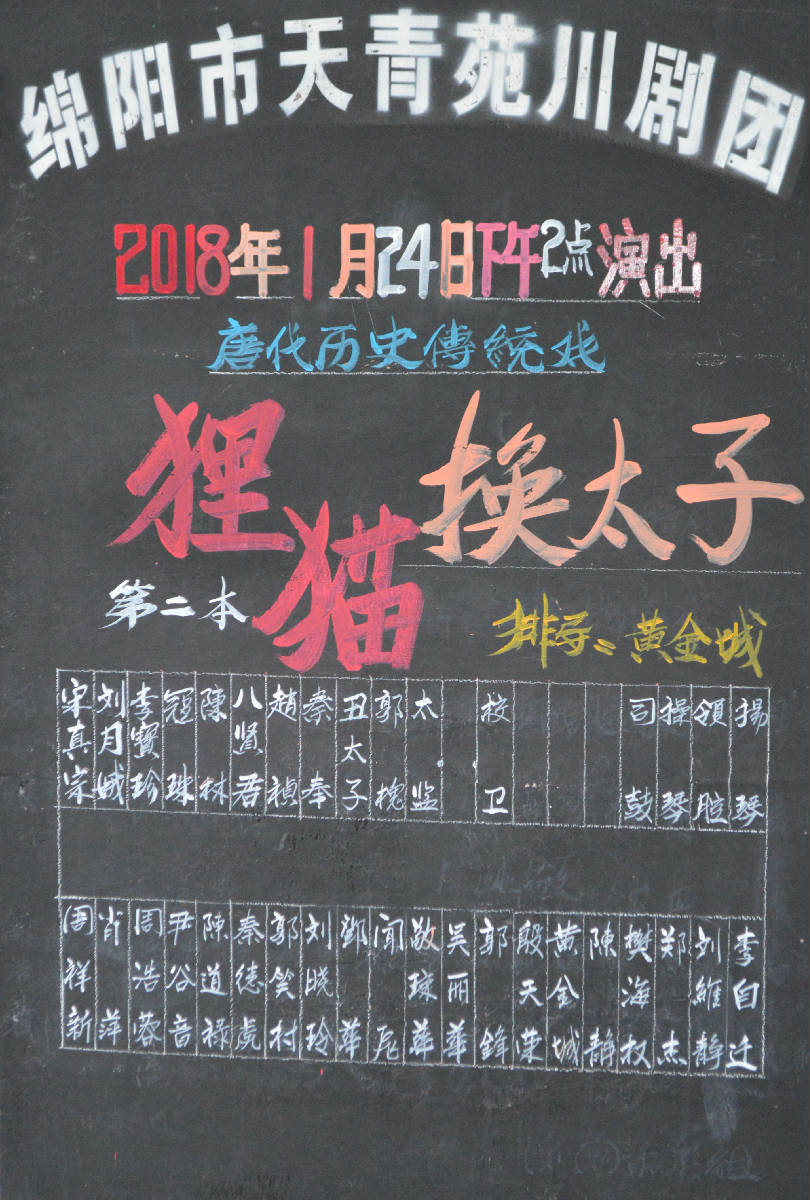 绵阳市天青苑川剧团
2018年1月24日下午2点演出
唐代历史傳統戏
狸猫换太子
第二本
排导：黄金城
宋真宗 刘月娥 李寳珍 冦珠 陳林 八賢君 趙禎 秦奉 丑太子 郭槐 太监 校卫 司鼓 操琴 領腔 揚琴
周祥新 肖萍 周浩蓉 尹谷音 陳道禄 秦德虎 郭笑村 刘晓玲 鄧華 闻 敬琼華 吴丽華 郭鋒 殷天荣 黄金城 陳静 樊海权 郑杰 刘維静 李自迁